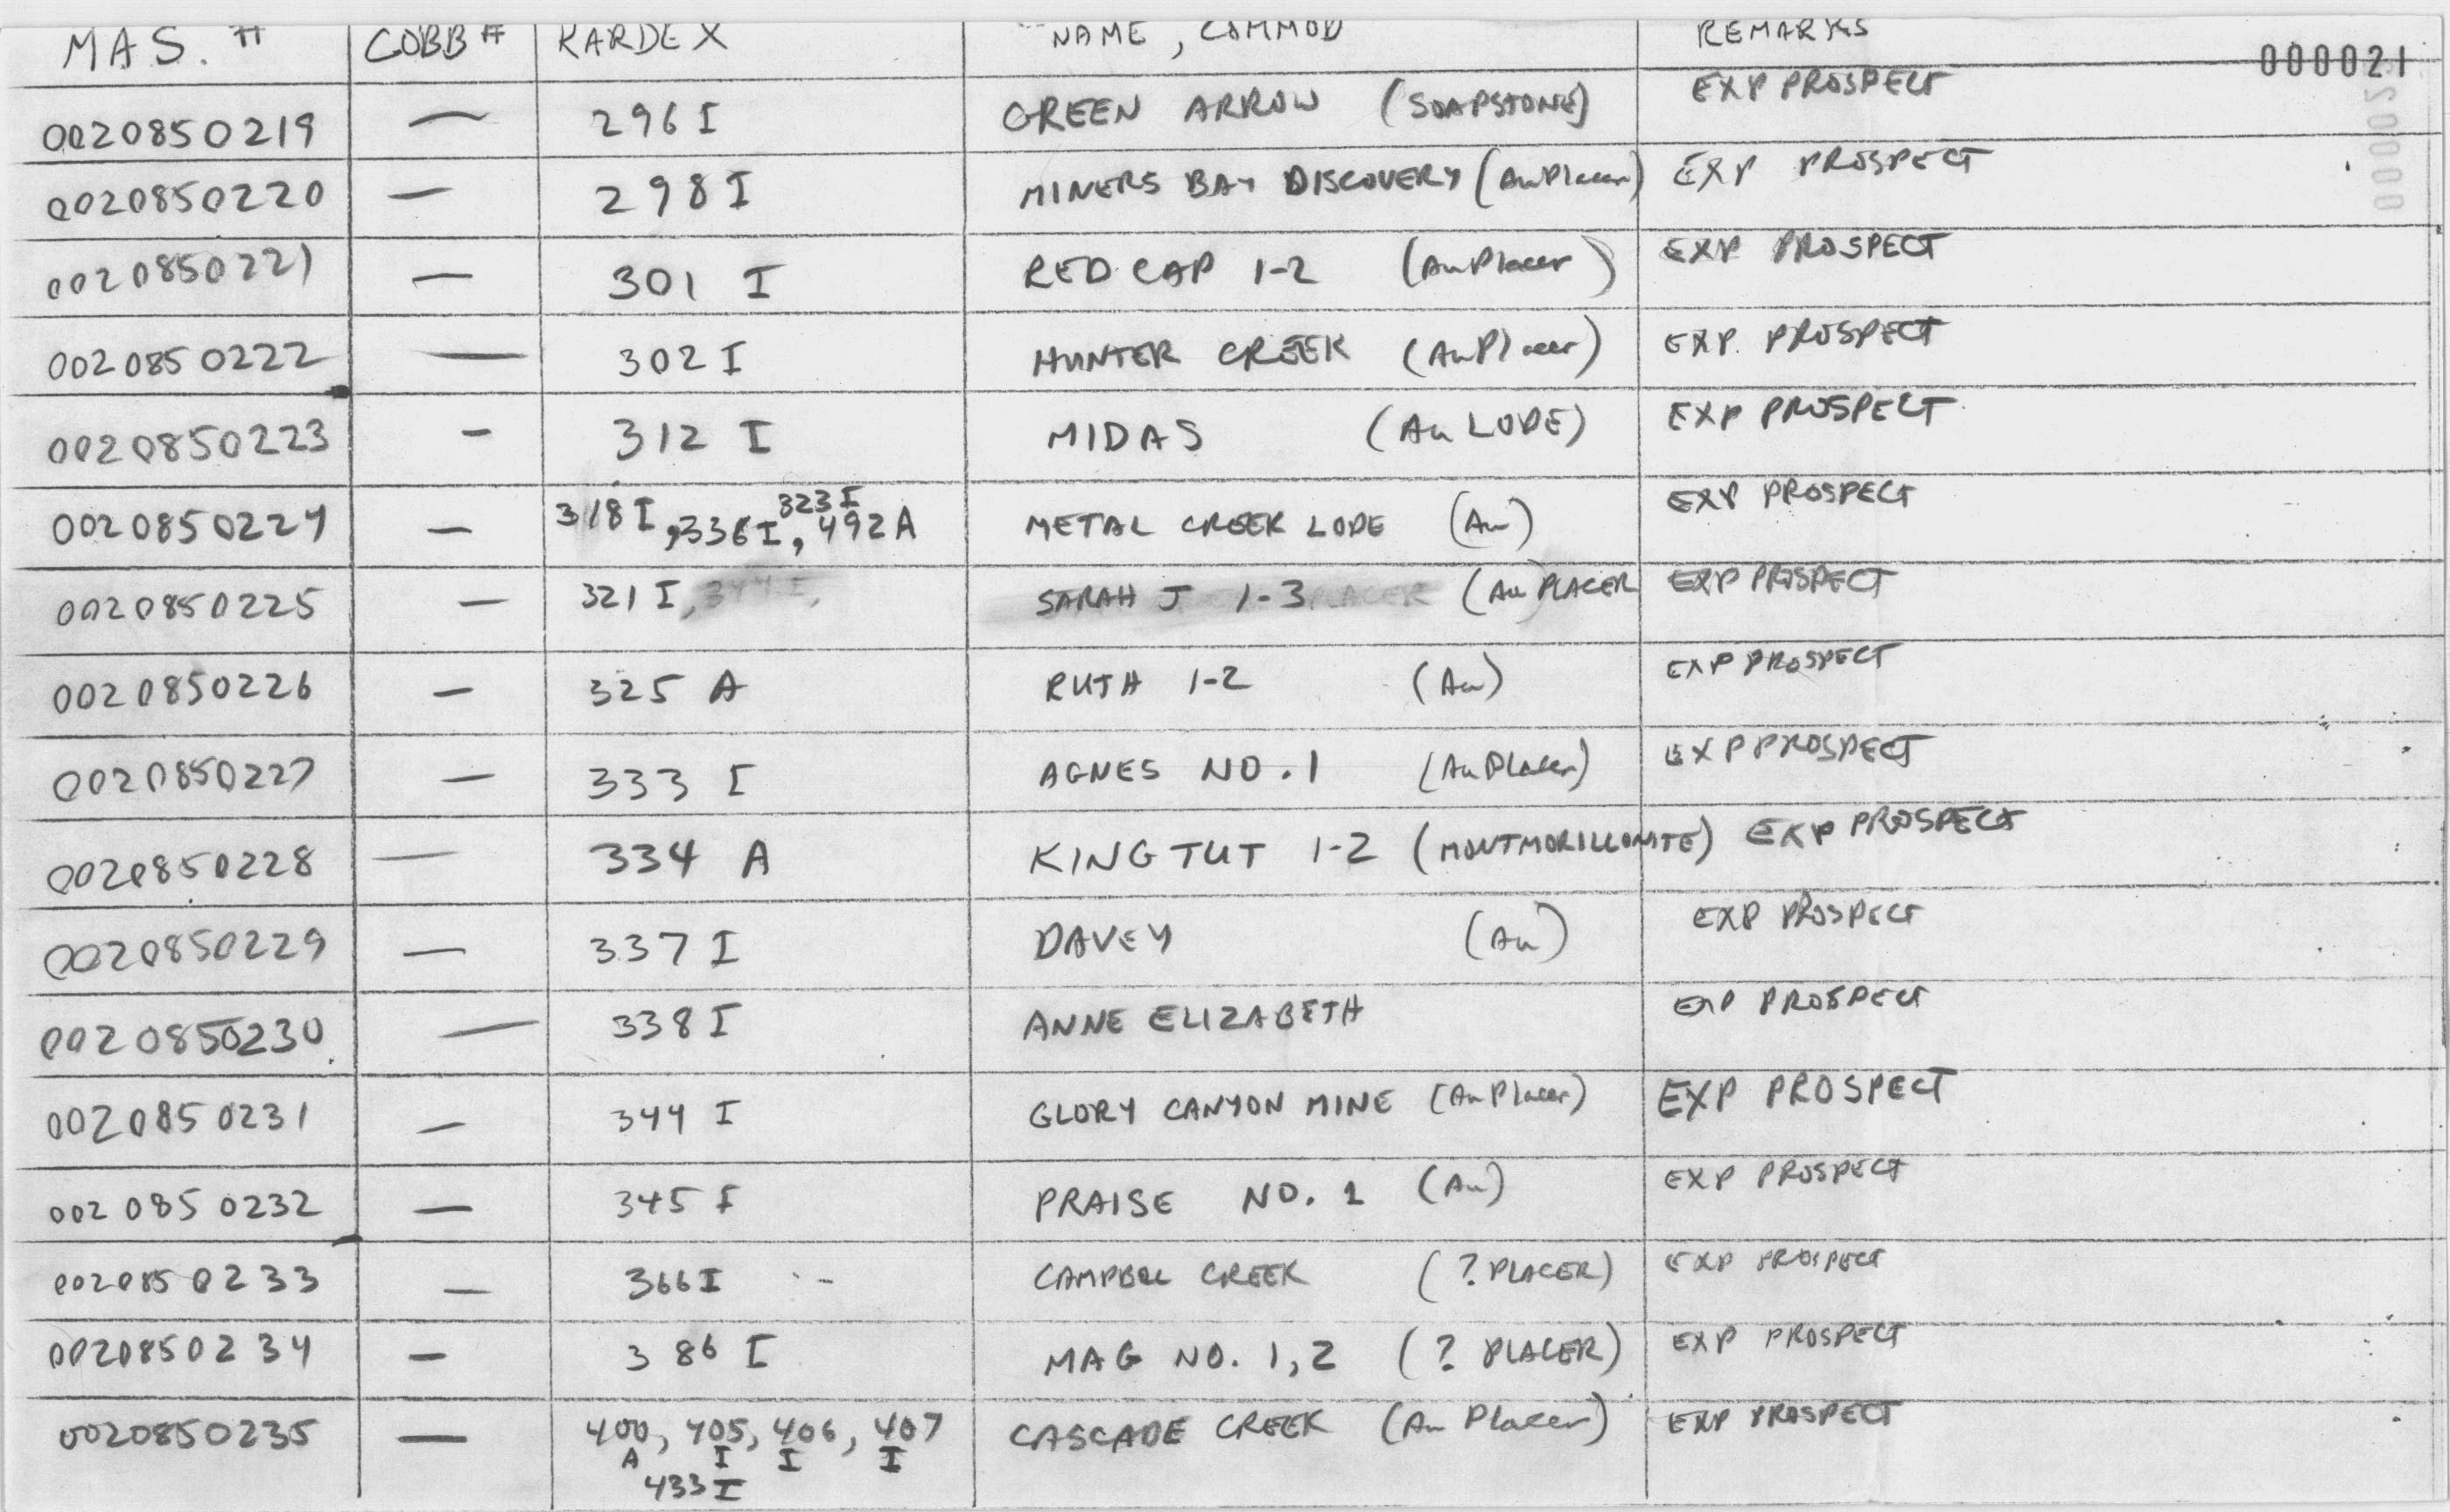 MAS. # COBB # KARDEX NAME, COMMOD REMARKS
000021
0020850219 — 296 I GREEN ARROW (SOAPSTONE) EXP PROSPECT
0020850220 — 298 I MINERS BAY DISCOVERY (Au Placer) EXP PROSPECT
0020850221 — 301 I RED CAP 1-2 (Au Placer) EXP PROSPECT
0020850222 — 302 I HUNTER CREEK (Au Placer) EXP. PROSPECT
0020850223 — 312 I MIDAS (Au LODE) EXP PROSPECT
0020850224 — 318 I, 336 I, 323 I, 492 A METAL CREEK LODE (Au) EXP PROSPECT
0020850225 — 321 I, SARAH J 1-3 (Au PLACER EXP PROSPECT
0020850226 — 325 A RUTH 1-2 (Au) EXP PROSPECT
0020850227 — 333 I AGNES NO. 1 (Au Placer) EXP PROSPECT
0020850228 — 334 A KING TUT 1-2 (MONTMORILLONITE) EXP PROSPECT
0020850229 — 337 I DAVEY (Au) EXP PROSPECT
0020850230 — 338 I ANNE ELIZABETH EXP PROSPECT
0020850231 — 344 I GLORY CANYON MINE (Au Placer) EXP PROSPECT
0020850232 — 345 I PRAISE NO. 1 (Au) EXP PROSPECT
0020850233 — 366 I CAMPBELL CREEK (? PLACER) EXP PROSPECT
0020850234 — 386 I MAG NO. 1, 2 (? PLACER) EXP PROSPECT
0020850235 — 400, 405, 406, 407 CASCADE CREEK (Au Placer) EXP PROSPECT
A I I I
433 I